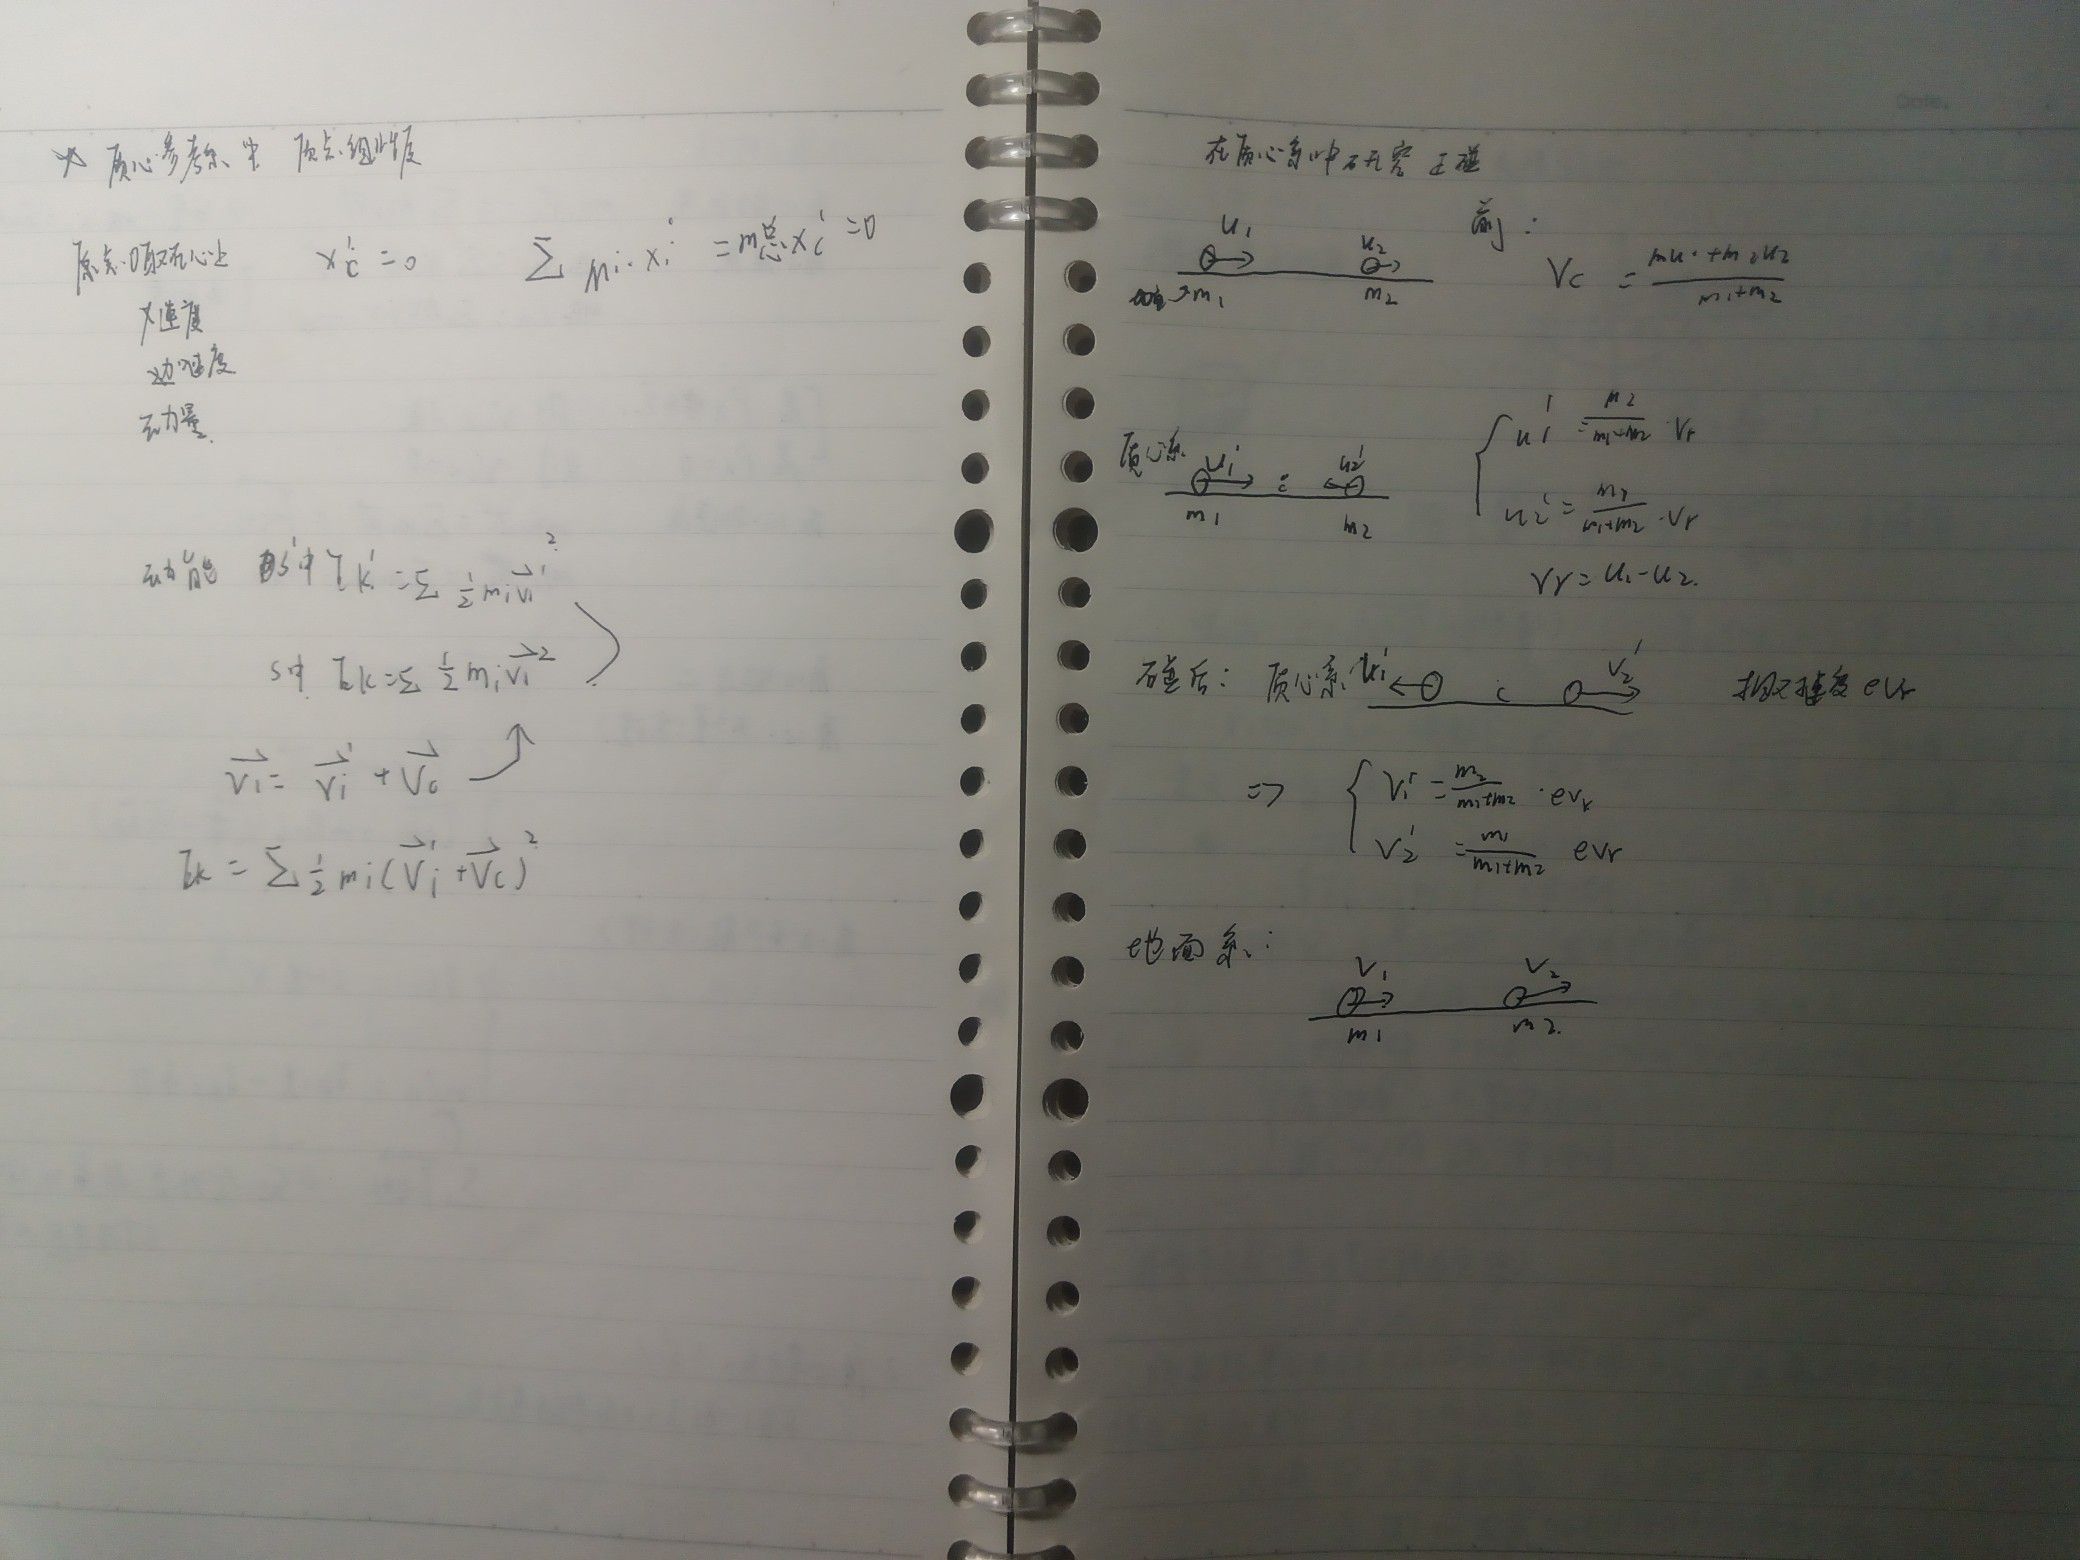 质心参考系中 质点组性质
原点O取在心上 x'c = 0 Σ mi·xi' = m总xc' = 0
x速度
加速度
动量
动能 S'中 Ek' = Σ ½ mi vi'²
S中 Ek = Σ ½ mi vi²
vi = vi' + vc
Ek = Σ ½ mi (vi' + vc)²
Date.
在质心系中研究正碰
前:
u1 u2
m1 m2
Vc = (mu1 + m2u2)/(m1+m2)
质心系 u1' c u2'
m1 m2
u1' = m2/(m1+m2) · Vr
u2' = m1/(m1+m2) · Vr
Vr = u1 - u2.
碰后: 质心系 c V2' 相对速度 eVr
=> V1' = m2/(m1+m2) · eVr
V2' = m1/(m1+m2) eVr
地面系:
V1 V2
m1 m2.